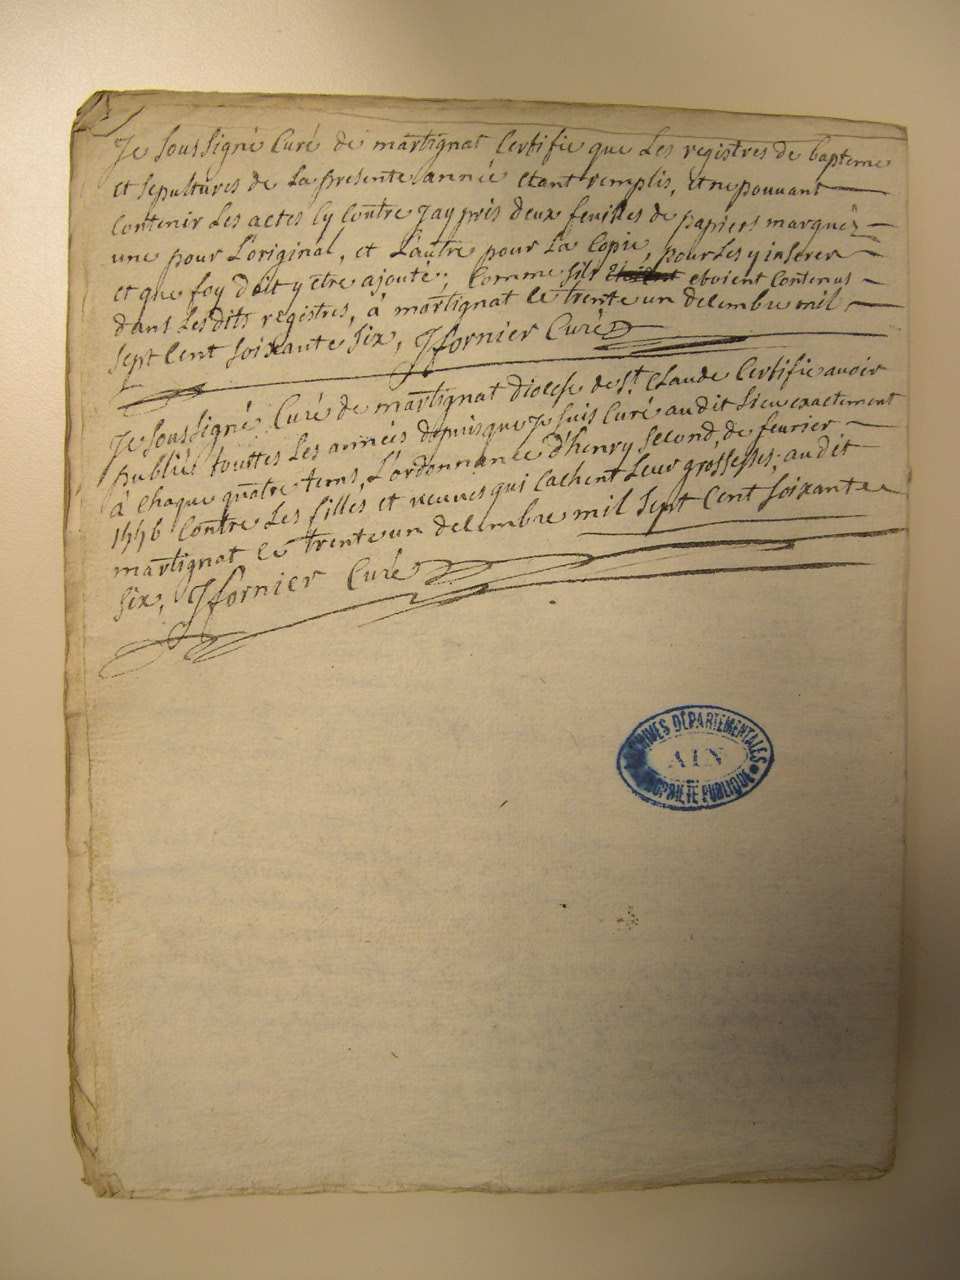 Je soussigné Curé de martignat Certifie que Les registres de bapteme
et sepultures de La presente année etant remplis, et ne pouvant
Contenir Les actes Cy Contre Jay pris deux feuilles de papiers marqués
une pour L'original, et L'autre pour La Copie, pour Les y inserer
et que foy doit y etre ajouté; Comme sils etoient Contenus
dans Lesdits registres, à martignat le trente un decembre mil
sept Cent soixante six, Jfornier Curé
Je soussigné Curé de martignat diocese de St. Claude Certifie avoir
publiés touttes Les années depuisque Je suis Curé audit Lieu exactement
à Chaque quatre tems, L'ordonnance d'henry second, de feurier
1556 Contre Les filles et veuves qui Cachent Leur grossesses; audit
martignat le trente un decembre mil sept Cent soixante
six, Jfornier Curé
ARCHIVES DÉPARTEMENTALES
AIN
PROPRIÉTÉ PUBLIQUE